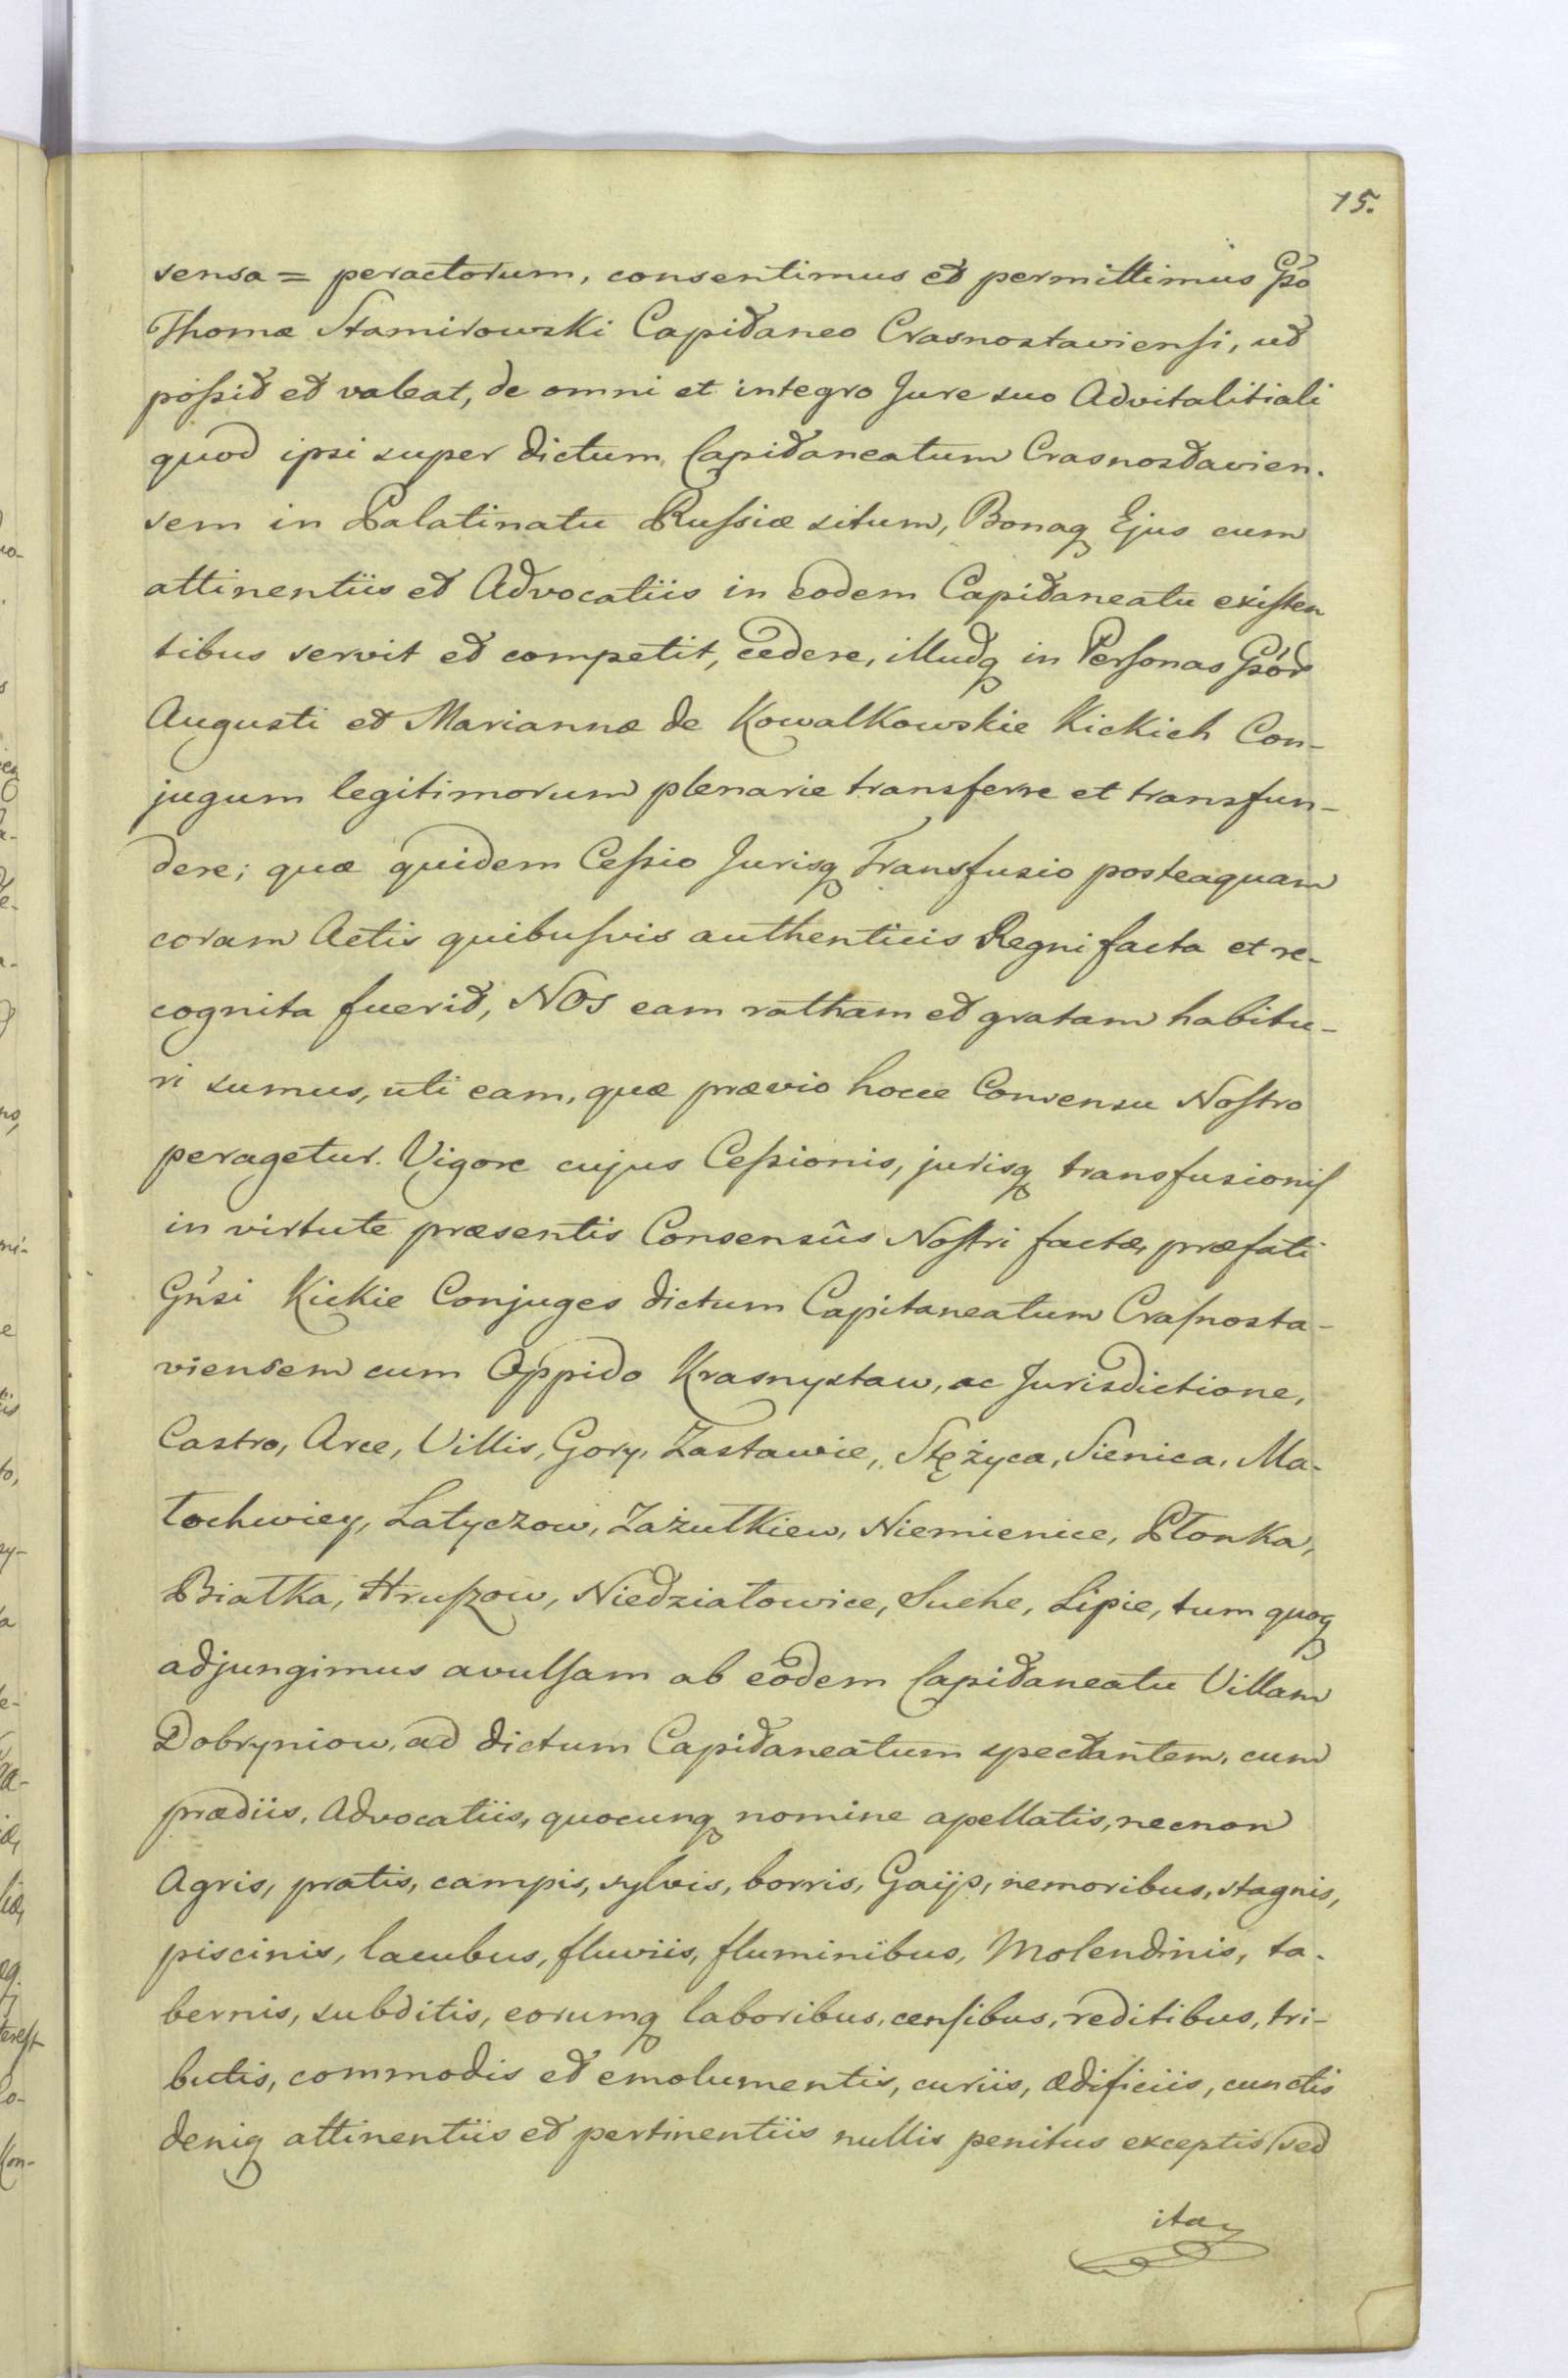 15.
sensa = peractorum, consentimus et permittimus Gso
Thomæ Stamirowski Capitaneo Crasnostaviensi, ut
poſsit et valeat, de omni et integro Jure suo Advitalitiali
quod ipsi super dictum Capitaneatum Crasnostavien.
sem in Palatinatu Ruſsiæ situm, Bonaq Ejus cum
attinentiis et Advocatiis in eodem Capitaneatu exiſten
tibus servit et competit, cedere, illudq in Perſonas Gsor
Augusti et Mariannæ de Kowalkowskie Kickich Con-
jugum legitimorum plenarie transferre et transfun-
dere; quæ quidem Ceſsio Jurisq Transfusio posteaquam
coram Actis quibuſvis authenticis Regni facta et re-
cognita fuerit, NOS eam ratham et gratam habitu-
ri sumus, uti eam, quæ prævio hocce Consensu Noſtro
peragetur. Vigore cujus Ceſsionis, jurisq transfusioniſ
in virtute præsentis Consensûs Noſtri factæ, præfati
Gnsi Kickie Conjuges dictum Capitaneatum Craſnosta-
viensem cum Oppido Krasnystaw, ac Jurisdictione,
Castro, Arce, Villis, Gory, Zastawie, Stężyca, Sienica, Ma-
łochwiey, Latyczow, Zażułkiew, Niemienice, Płonka,
Białka, Hruſzow, Niedziałowice, Suche, Lipie, tum quoq
adjungimus avulſam ab eodem Capitaneatu Villam
Dobryniow, ad dictum Capitaneatum spectantem, cum
prædiis, Advocatiis, quocunq nomine apellatis, necnon
Agris, pratis, campis, sylvis, borris, Gaijs, nemoribus, stagnis,
piscinis, lacubus, fluviis, fluminibus, Molendinis, ta-
bernis, subditis, eorumq laboribus, cenſibus, reditibus, tri-
butis, commodis et emolumentis, curiis, ædificiis, cunctis
deniq attinentiis et pertinentiis nullis penitus exceptis /sed
ita